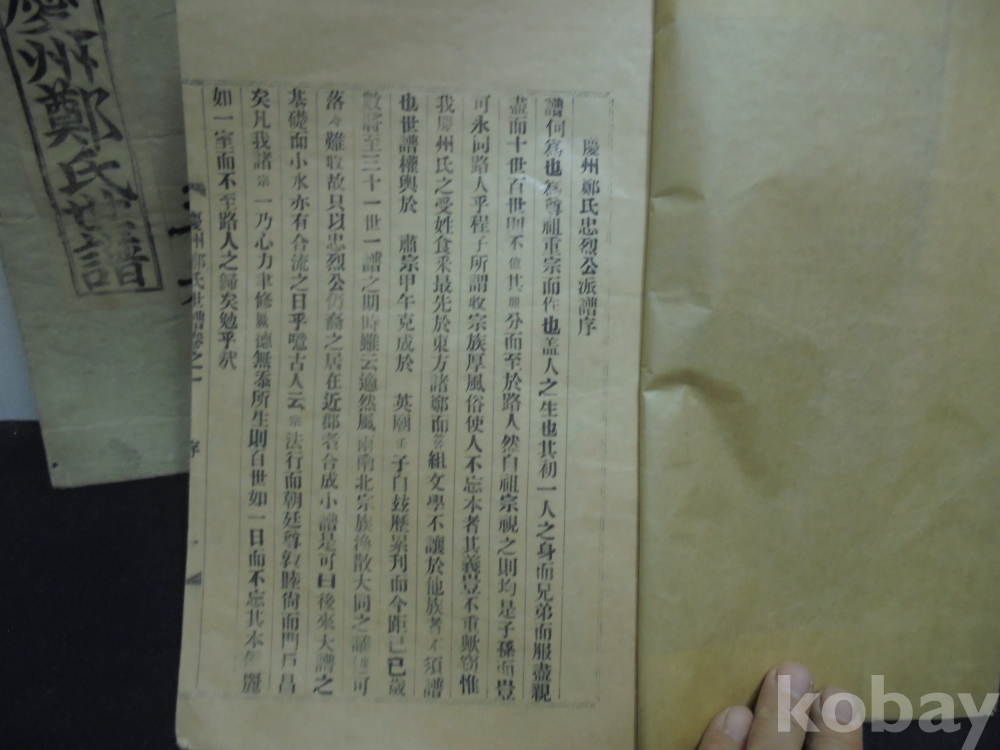 慶州鄭氏忠烈公派譜序
譜何爲也爲尊祖重宗而作也盖人之生也其初一人之身而兄弟而服盡親
盡而十世百世則不 其 分而至於路人然自祖宗視之則均是子孫而豈
可永同路人乎程子所謂收宗族厚風俗使人不忘本者其義豈不重歟窃惟
我慶州氏之受姓食采最先於東方諸鄭而 組文學不讓於他族者不須譜
也世譜權輿於 肅宗甲午克成於 英廟壬子自玆歷累刊而今距己巳歲
數將至三十一世一譜之期時雖云適然風雨南北宗族渙散大同之議 可
落々難收故只以忠烈公仍裔之居在近郡者合成小譜是可曰後來大譜之
基礎而小水亦有合流之日乎噫古人云宗法行而朝廷尊敦睦尙而門戶昌
矣凡我諸宗一乃心力聿修厥德無忝所生則百世如一日而不忘其本 麗
如一室而不至路人之歸矣勉乎㢤
慶州鄭氏世譜卷之一 序
慶州鄭氏世譜
kobay